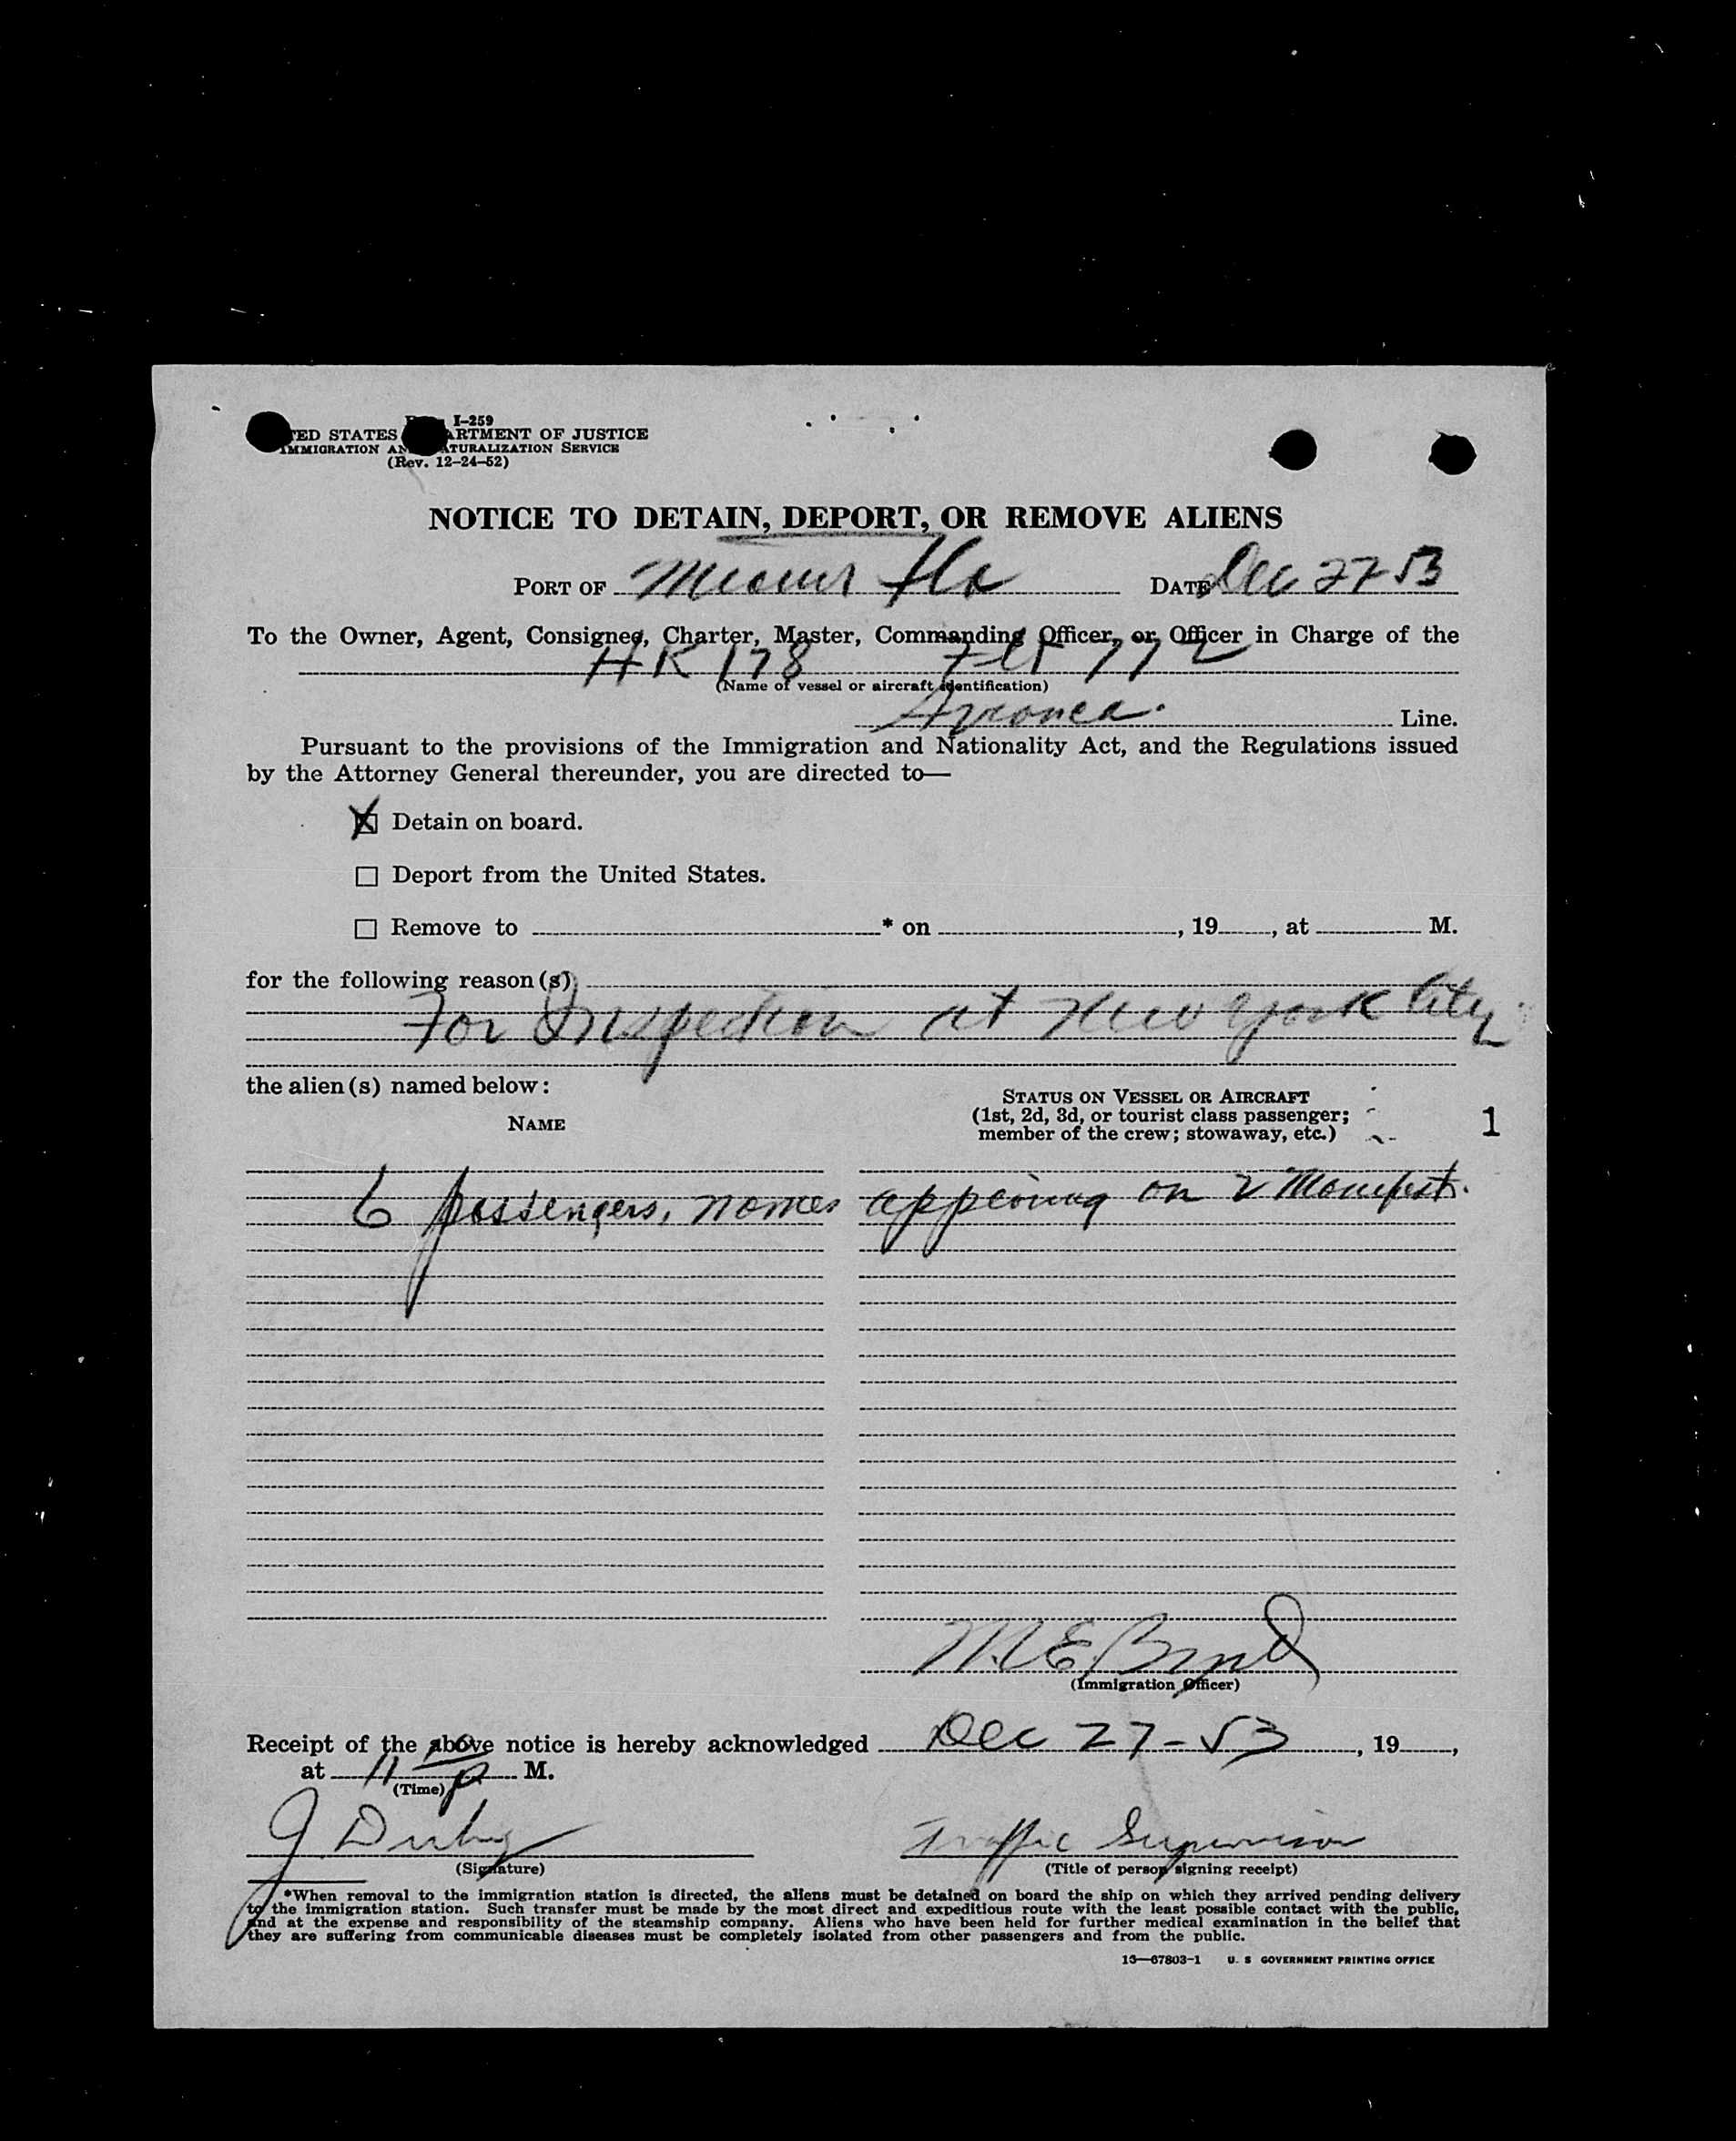 I-259
TED STATES ARTMENT OF JUSTICE
IMMIGRATION AN ATURALIZATION SERVICE
(Rev. 12-24-52)
NOTICE TO DETAIN, DEPORT, OR REMOVE ALIENS
PORT OF Miami Fla DATE Dec 27 53
To the Owner, Agent, Consignee, Charter, Master, Commanding Officer, or Officer in Charge of the
HK 178 Flt 772
(Name of vessel or aircraft identification)
Avianca. Line.
Pursuant to the provisions of the Immigration and Nationality Act, and the Regulations issued
by the Attorney General thereunder, you are directed to—
X Detain on board.
☐ Deport from the United States.
☐ Remove to * on , 19 , at M.
for the following reason(s)
For Inspection at New York City
the alien(s) named below:
NAME
STATUS ON VESSEL OR AIRCRAFT
(1st, 2d, 3d, or tourist class passenger;
member of the crew; stowaway, etc.)
1
6 passengers, names appearing on 2 Manifest.
M.E. Byrd
(Immigration Officer)
Receipt of the above notice is hereby acknowledged Dec 27-53, 19 ,
at 11 p M.
(Time)
J
Traffic Supervisor
(Signature) (Title of person signing receipt)
*When removal to the immigration station is directed, the aliens must be detained on board the ship on which they arrived pending delivery
to the immigration station. Such transfer must be made by the most direct and expeditious route with the least possible contact with the public,
and at the expense and responsibility of the steamship company. Aliens who have been held for further medical examination in the belief that
they are suffering from communicable diseases must be completely isolated from other passengers and from the public.
16—67803-1 U. S GOVERNMENT PRINTING OFFICE